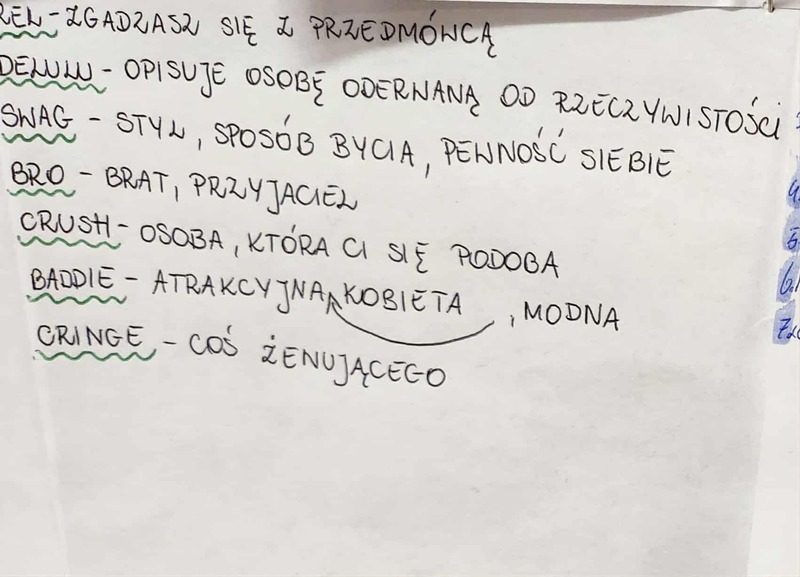 REL - ZGADZASZ SIĘ Z PRZEDMÓWCĄ
DELULU - OPISUJE OSOBĘ ODERWANĄ OD RZECZYWISTOŚCI
SWAG - STYL, SPOSÓB BYCIA, PEWNOŚĆ SIEBIE
BRO - BRAT, PRZYJACIEL
CRUSH - OSOBA, KTÓRA CI SIĘ PODOBA
BADDIE - ATRAKCYJNA, KOBIETA , MODNA
CRINGE - COŚ ŻENUJĄCEGO